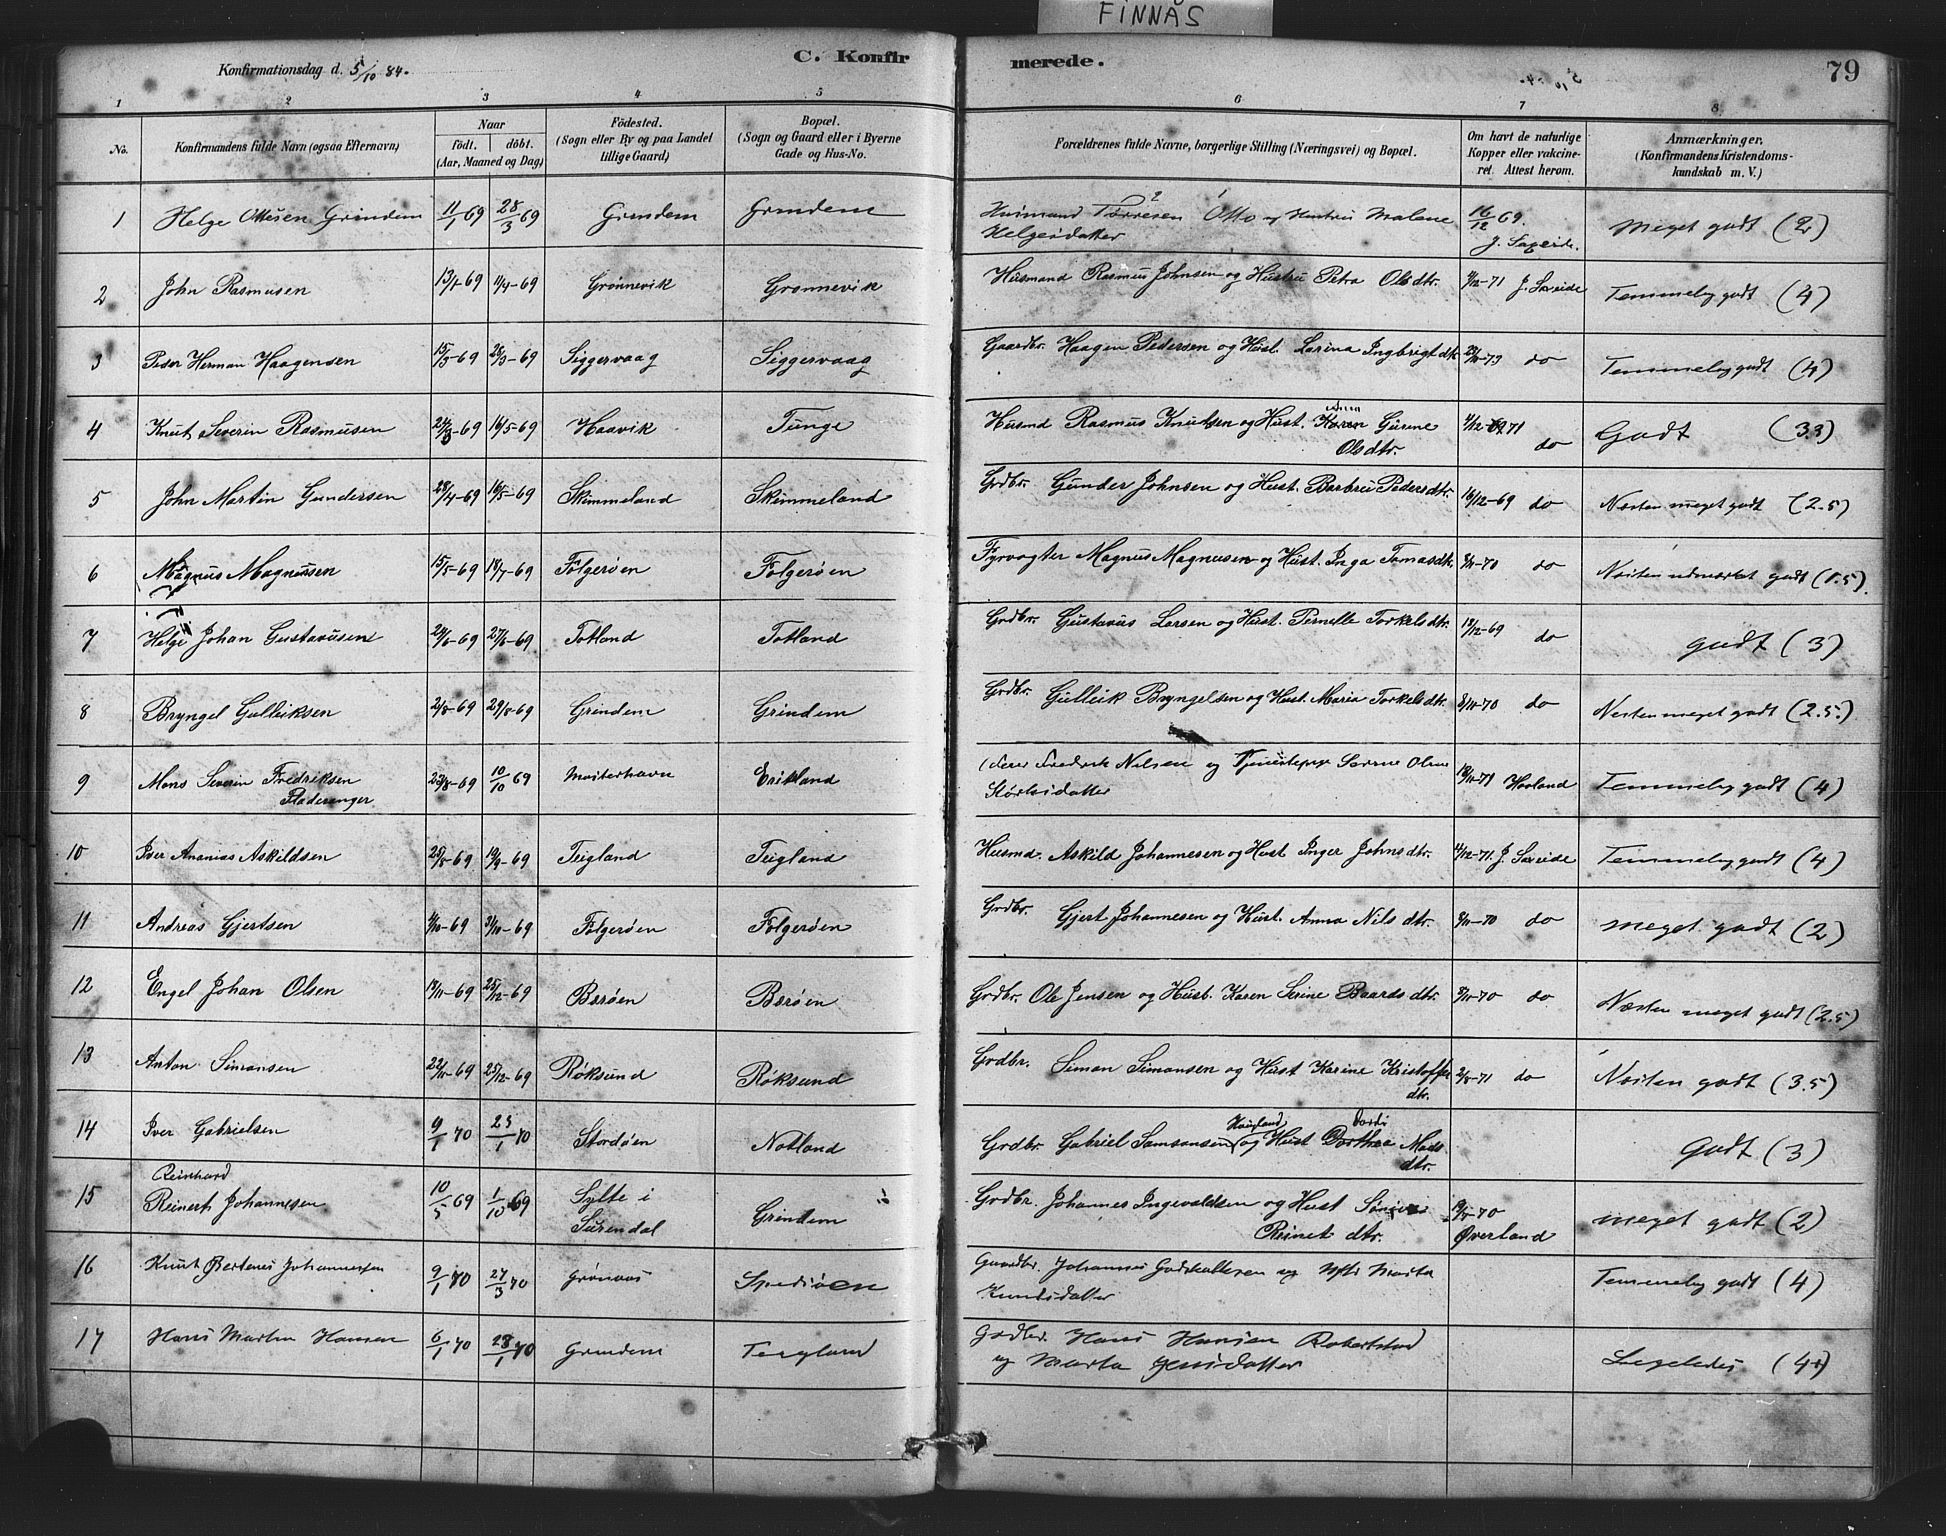 FINNÅS
Konfirmationsdag d. 5/10 84.
C. Konfir
merede.
79
1 2 3 4 5 6 7 8
No.
Konfirmandens fulde Navn (ogsaa Efternavn)
Naar
födt. döbt.
(Aar, Maaned og Dag)
Födested.
(Sogn eller By og paa Landet
tillige Gaard)
Bopæl.
(Sogn og Gaard eller i Byerne
Gade og Hus-No.
Forældrenes fulde Navne, borgerlige Stilling (Næringsvei) og Bopæl.
Om havt de naturlige
Kopper eller vakcine-
ret. Attest herom.
Anmærkninger.
(Konfirmandens Kristendoms-
kundskab m. V.)
1 Helge Ottesen Grindem 11/1 69 28/3 69 Grindem Grindem Husmand Tørresen Otto og Hustru Malene 16/12 69. Meget godt (2)
Helgesdatter
2 John Rasmusen 13/1-69 1/4-69 Grønnevik Grønnevik Husmand Rasmus Johnsen og Hustru Petra Olsdtr. 4/12-71 J. Søreide Temmelig godt (4)
3 Peder Herman Haagensen 15/3-69 28/3-69 Siggervaag Siggervaag Gaardbr. Haagen Pedersen og Hust. Larina Ingbrigtdtr 29/11-73 do Temmelig godt (4)
4 Knut Severin Rasmusen 24/3-69 16/5-69 Haavik Tunge Husmd Rasmus Knutsen og Hust. Gurine 4/12-71 do Godt (3.3)
Olsdtr.
5 John Martin Gundersen 28/4-69 16/5-69 Skimmeland Skimmeland Grdbr. Gunder Johnsen og Hust. Barbru Pedersdtr. 16/12-69 do Næsten meget godt (2.5)
6 Magnus Magnussen 15/5-69 18/7-69 Folgerøen Folgerøen Fyrvogter Magnus Magnusen og Hust. Inga Tomasdtr. 8/11-70 do Næsten udmærket godt (1.5)
7 Helge Johan Gustavusen 24/6-69 27/6-69 Totland Totland Grdbr. Gustavus Larsen og Hust. Pernelle Torkelsdtr. 18/12-69 do godt (3)
8 Bryngel Gulleiksen 2/8-69 29/8-69 Grindem Grindem Grdbr. Gulleik Bryngelsen og Hust. Maria Torkelsdtr. 8/11-70 do Næsten meget godt (2.5.)
9 Mons Severin Fredriksen 23/8-69 10/10 69 Mosterhavn Erikland Fredrik Nilsen og Tjenestepige Olsen 18/11-71 Hovland Temmelig godt (4)
10 Iver Ananias Askildsen 25/8-69 19/9-69 Teigland Teigland Husmd. Askild Johannesen og Hust Inger Johnsdtr. 4/12-71. J. Søreide Temmelig godt (4)
11 Andreas Gjertsen 4/10-69 31/10-69 Folgerøen Folgerøen Grdbr. Gjert Johannesen og Hust. Anna Nilsdtr. 8/11-70 do meget godt (2)
12 Engel Johan Olsen 18/11-69 25/12-69 Børøen Børøen Grdbr. Ole Jensen og Hust. Karen Serine Baardsdtr. 8/11-70 do Næsten meget godt (2.5)
13 Anton Simonsen 22/11-69 25/12-69 Røksund Røksund Grdbr. Simon Simonsen og Hust Karine Kristoffer 2/8-71 do Næsten godt (3.5)
dtr.
14 Iver Gabrielsen 9/1 70 23/1 70 Stordøen Notland Grdbr. Gabriel Samsonsen og Hust Dorthea Mads godt (3)
dtr.
Reinhard
15 Reinert Johannesen 10/5 69 1/10 69 Sylte i Grindem Grdbr. Johannes Ingevaldsen og Hust 70 meget godt (2)
Surendal Reinet dtr. Øverland
16 Knut Bertenes Johannesen 9/1 70 27/3 70 Grønaas Spedsøen Gaardbr. Johannes Godskalksen og Marta Temmelig godt (4)
Knudsdatter
17 Hans Martin Hansen 6/1 70 28/1 70 Grindem Teigland Grdbr. Hans Hansen (4+)
og Marta Jensdatter